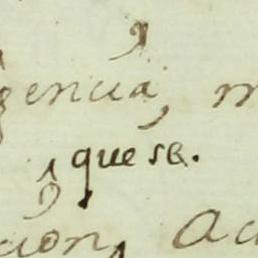 gencia, m
que se.
cion, ac